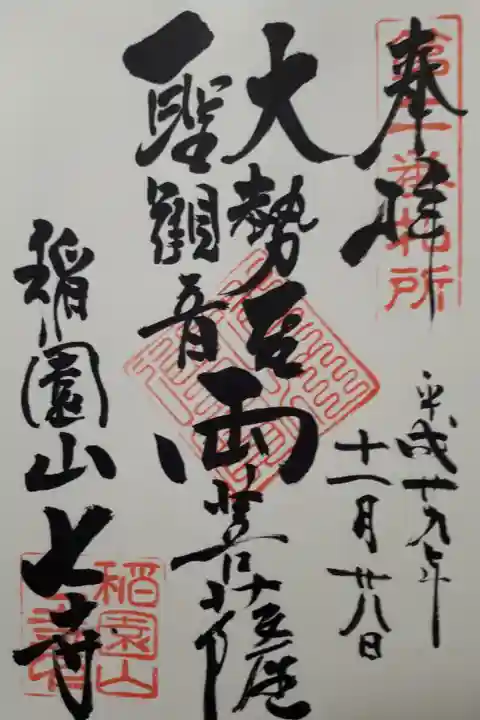 奉拝
第十一番札所
平成廿九年
十一月廿八日
大勢至
聖観音
両菩薩
稲園山七寺
稲園山